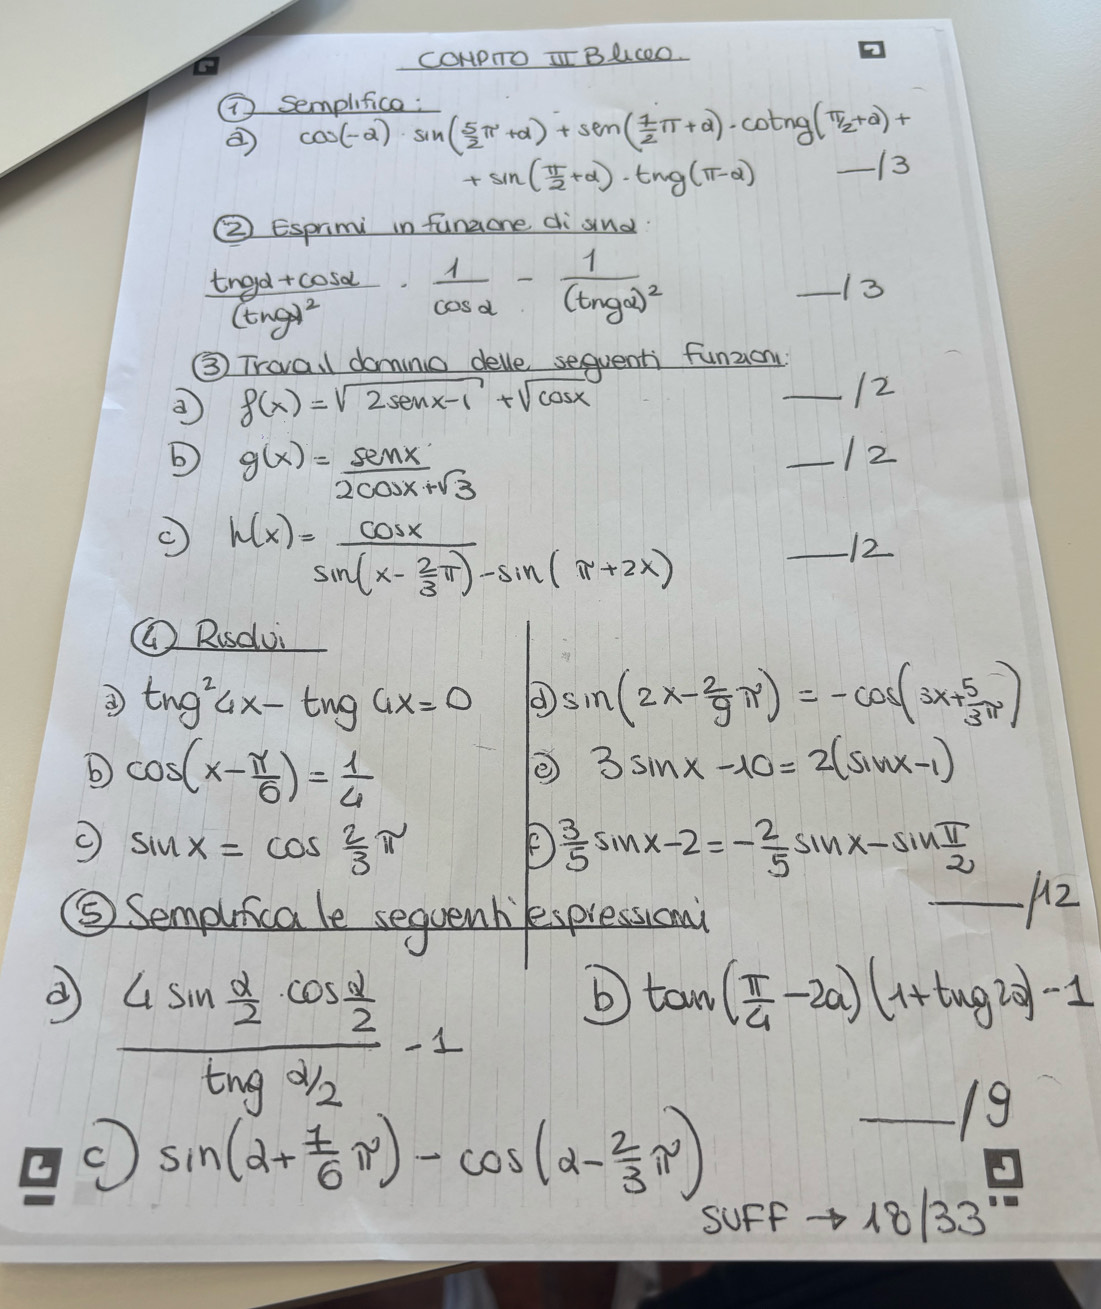 COMPITO III B liceo.
① Semplifica:
a) cos(-α) · sin(5/2 π + α) + sen(1/2 π + α) · cotng(π/2 + α) +
+ sin(π/2 + α) · tng(π - α) __/3
② Esprimi in funzione di sinα.
(tngα + cosα)/(tngα)² · 1/cosα - 1/(tngα)² __/3
③ Trova il dominio delle seguenti funzioni:
a) f(x) = √(2senx-1) + √cosx __/2
b) g(x) = senx/(2cosx+√3) __/2
c) h(x) = cosx/(sin(x - 2/3 π) - sin(π + 2x)) __/2
④ Risolvi
a) tng²4x - tng 4x = 0
b) cos(x - π/6) = 1/4
c) sinx = cos 2/3 π
d) sin(2x - 2/9 π) = -cos(3x + 5/3 π)
e) 3 sinx - 10 = 2(sinx - 1)
f) 3/5 sinx - 2 = -2/5 sinx - sin π/2
__/12
⑤ Semplifica le seguenti espressioni
a) (4 sin α/2 · cos α/2)/(tng α/2) - 1
b) tan(π/4 - 2α)(1 + tng 2α) - 1
__/9
c) sin(α + 1/6 π) - cos(α - 2/3 π)
SUFF → 18/33